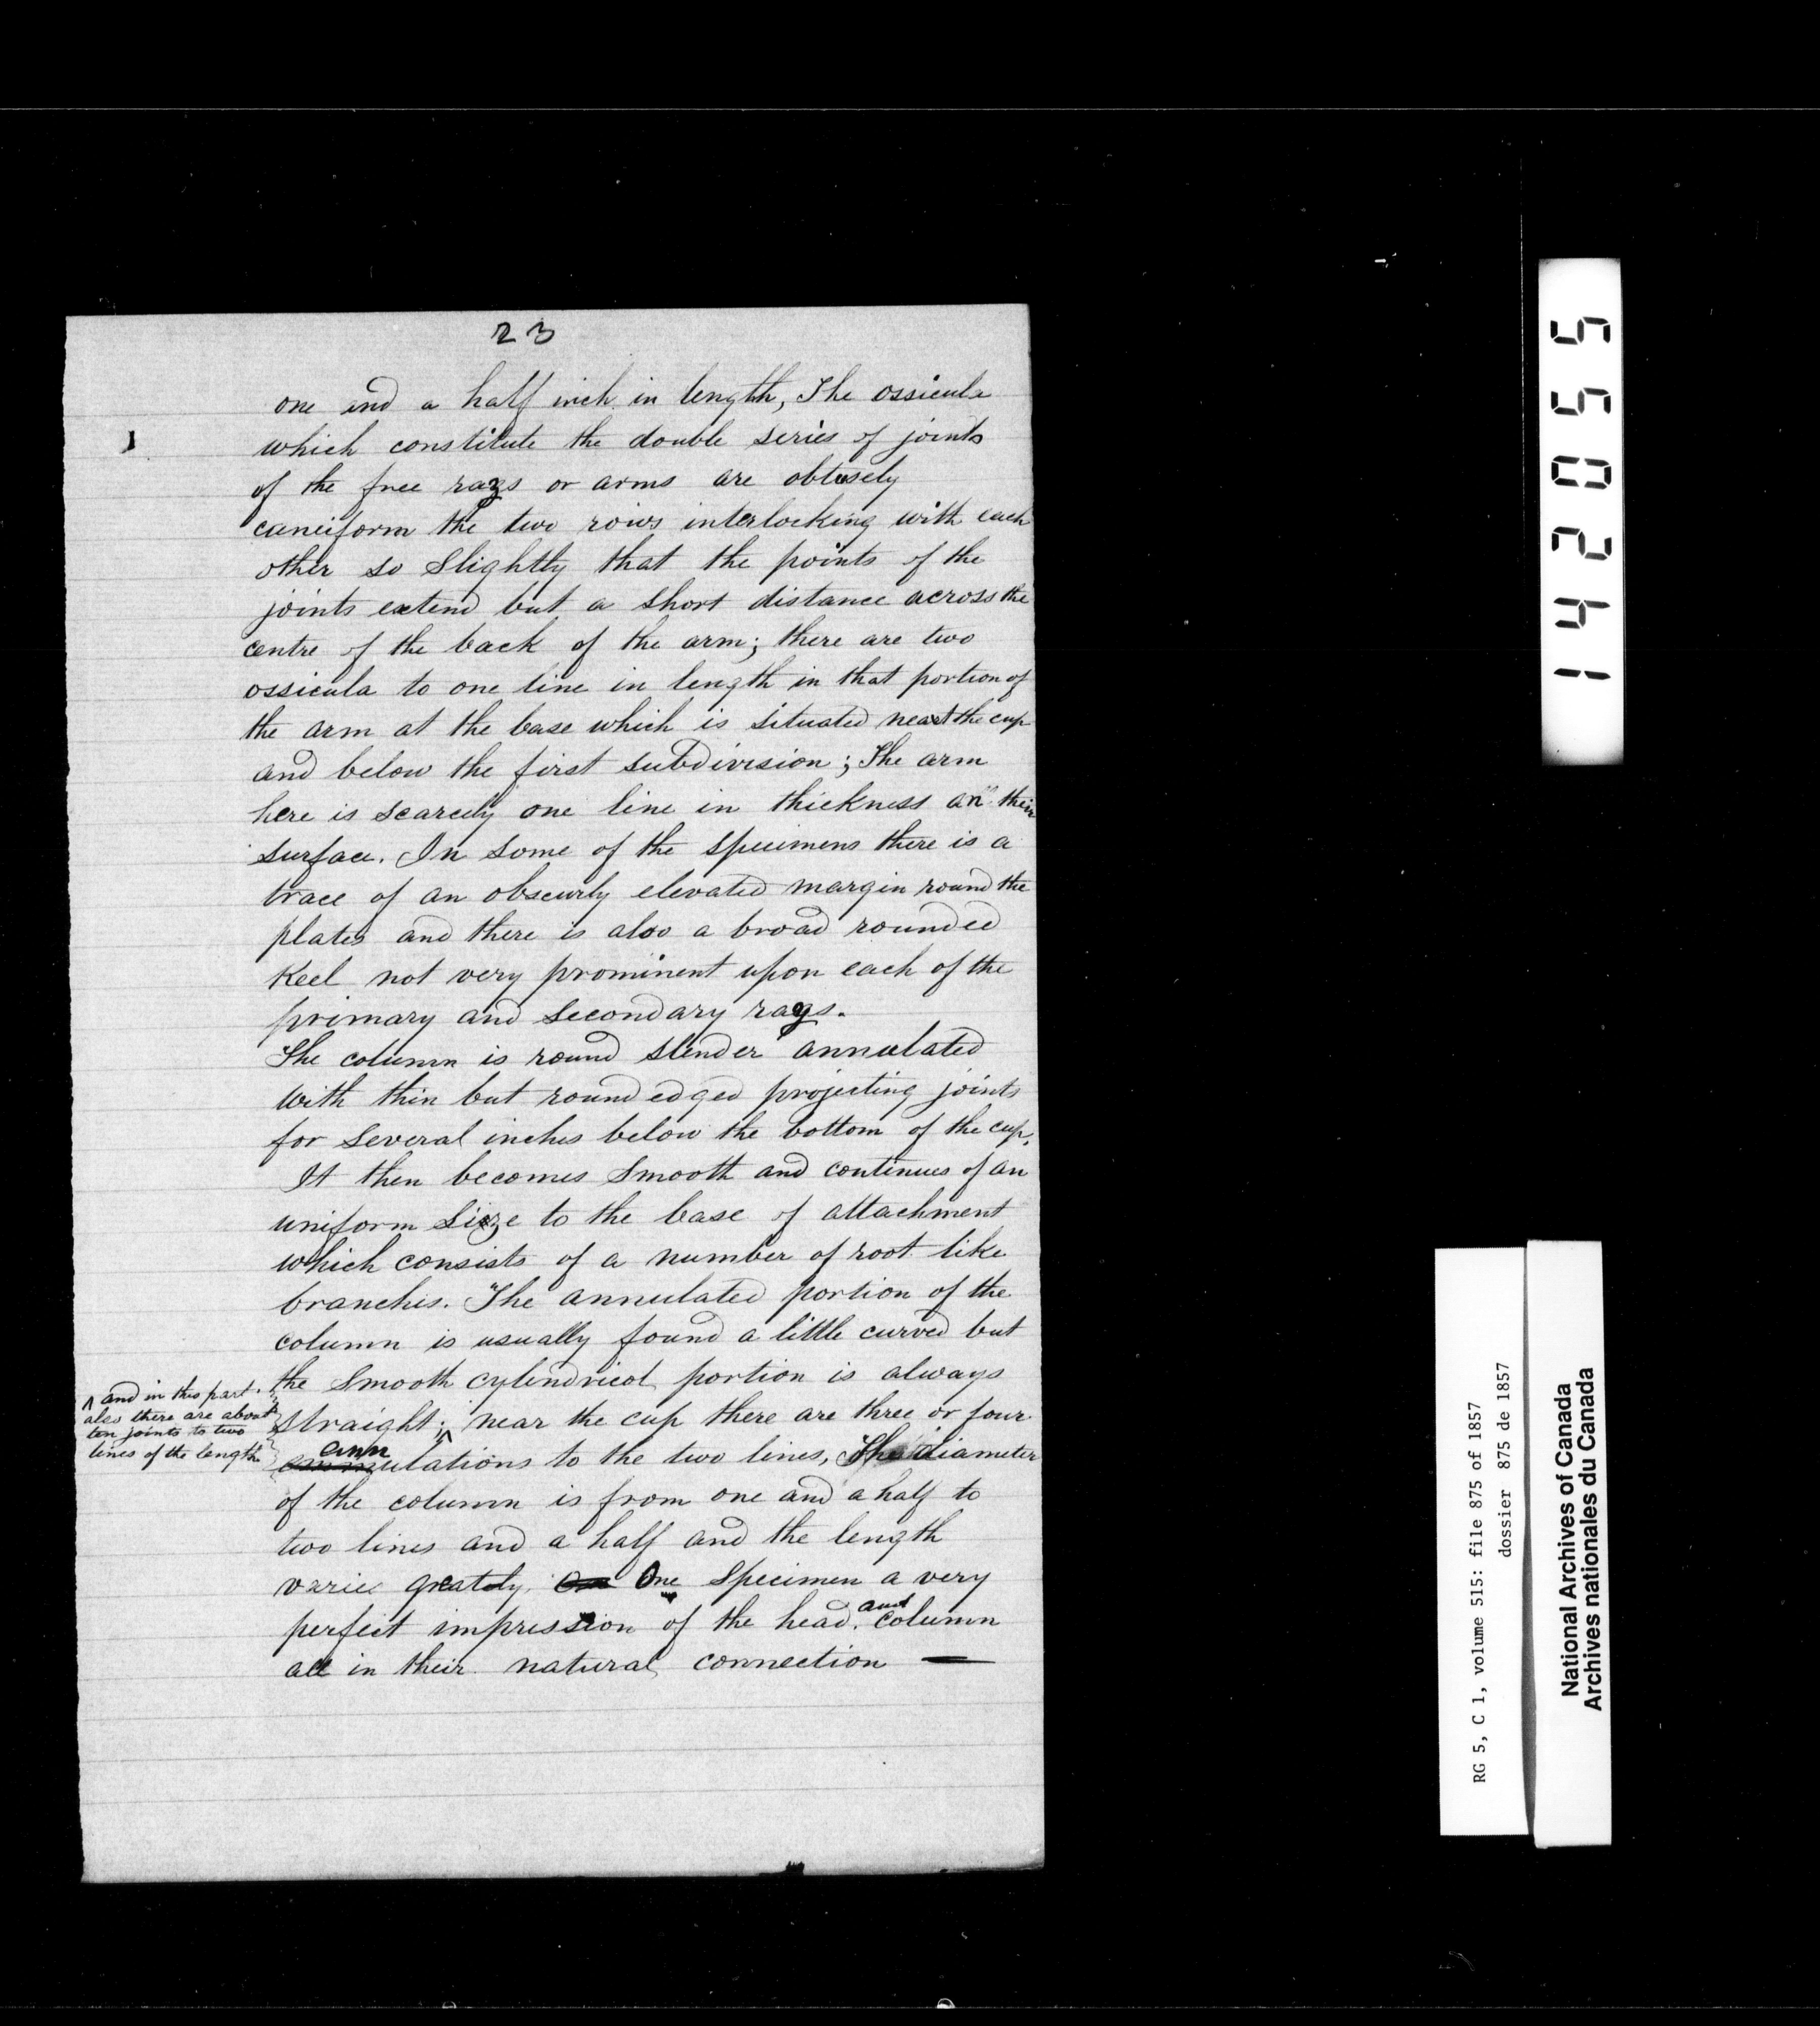 23
one and a half inch in length, The ossicula
which constitute the double series of joints
of the free rays or arms are obtusely
cuneiform the two rows interlocking with each
other so slightly that the points of the
joints extend but a short distance across the
centre of the back of the arm; there are two
ossicula to one line in length in that portion of
the arm at the base which is situated next the cup
and below the first subdivision; The arm
here is scarcely one line in thickness an their
surface. In some of the specimens there is a
trace of an obscurly elevated margin round the
plates and there is also a broad rounded
Keel not very prominent upon each of the
primary and secondary rays.
The column is round slender annulated
with thin but round edged projecting joints
for several inches below the bottom of the cup.
It then becomes smooth and continues of an
uniform size to the base of attachment
which consists of a number of root like
branches. The annulated portion of the
column is usually found a little curved but
the smooth cylindrical portion is always
straight; near the cup there are three or four
^ and in this part
also there are about
ten joints to two
lines of the length
annulations to the two lines, The diameter
of the column is from one and a half to
two lines and a half and the length
varies greatly. One specimen a very
perfect impression of the head. and column
all in their natural connection —
142055
RG 5, C 1, volume 515: file 875 of 1857
dossier 875 de 1857
National Archives of Canada
Archives nationales du Canada